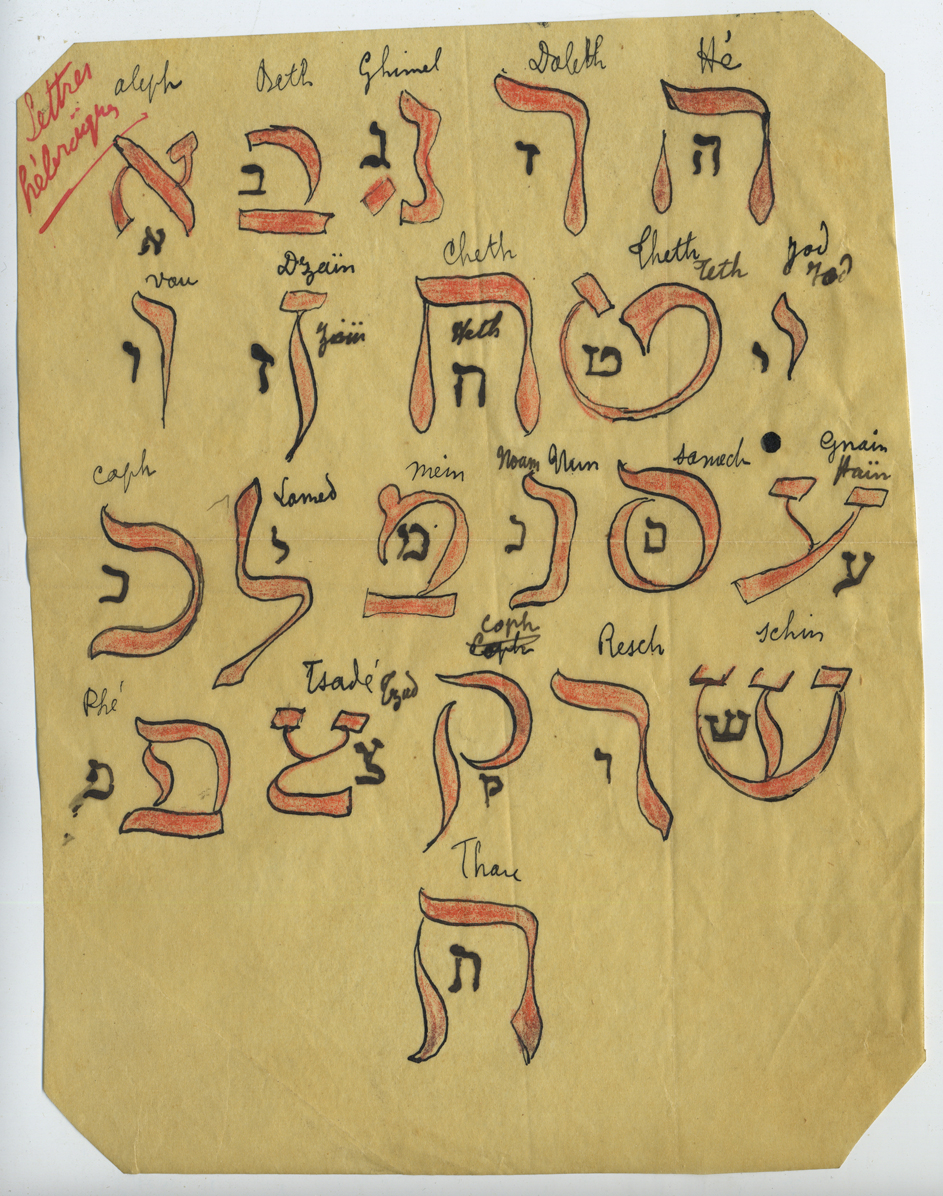 Lettres
hébraïques
aleph Beth Ghimel Daleth Hé
א ב ג ד ה
vau Dzaïn Cheth Theth Jod
Zaïn Heth Teth Jod
ו ז ח ט י
caph Lamed mein Noam Nun samech Gnain
Haïn
כ ל מ נ ס ע
Phé Tsadé Tzad coph Resch schin
Coph
פ צ ק ר ש
Thau
ת